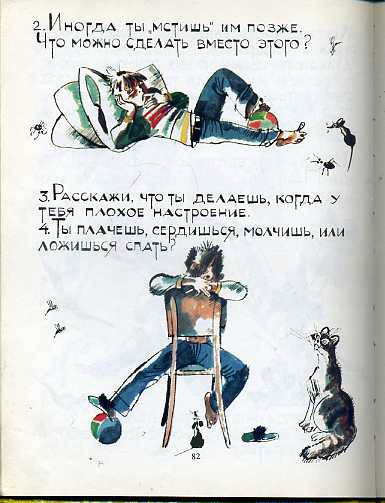 2. Иногда ты „мстишь" им позже.
Что можно сделать вместо этого?
3. Расскажи, что ты делаешь, когда у
тебя плохое настроение.
4. Ты плачешь, сердишься, молчишь, или
ложишься спать?
82